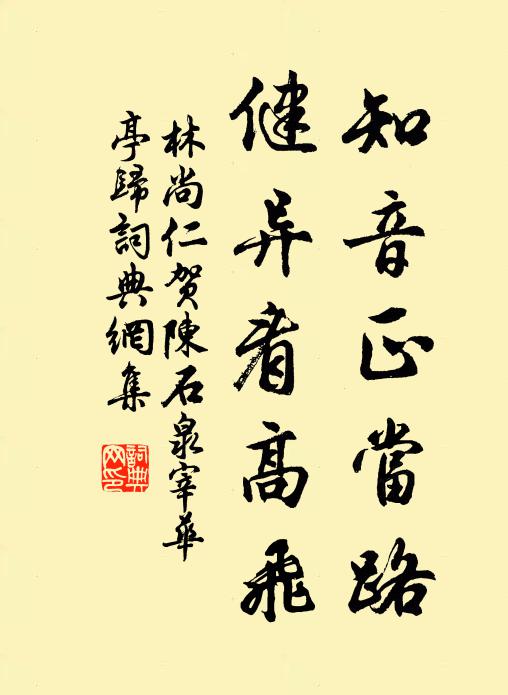 知音正當路
健异看高飛
林尚仁賀陳石泉宰華
亭歸詞典網集
詞典網印